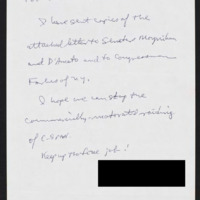 I have sent copies of the
attached letter to Senator Moynihan
and D'Amato and to Congressman
of NY.
I hope we can stop the
commercially motivated
of C-SPAN.
Keep up the fine job!